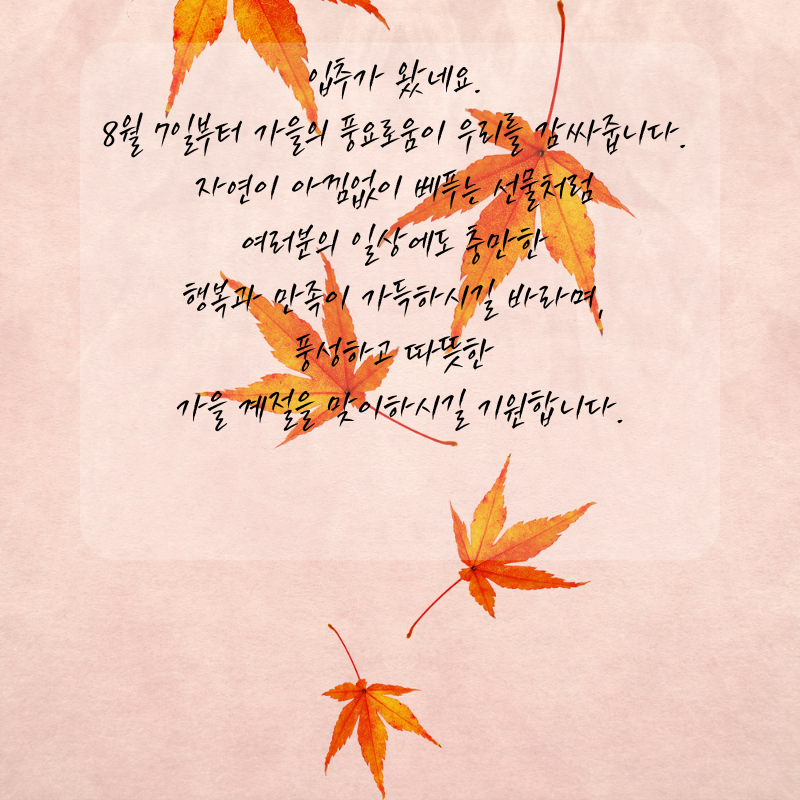 입추가 왔네요.
8월 7일부터 가을의 풍요로움이 우리를 감싸줍니다.
자연이 아낌없이 베푸는 선물처럼
여러분의 일상에도 충만한
행복과 만족이 가득하시길 바라며,
풍성하고 따뜻한
가을 계절을 맞이하시길 기원합니다.